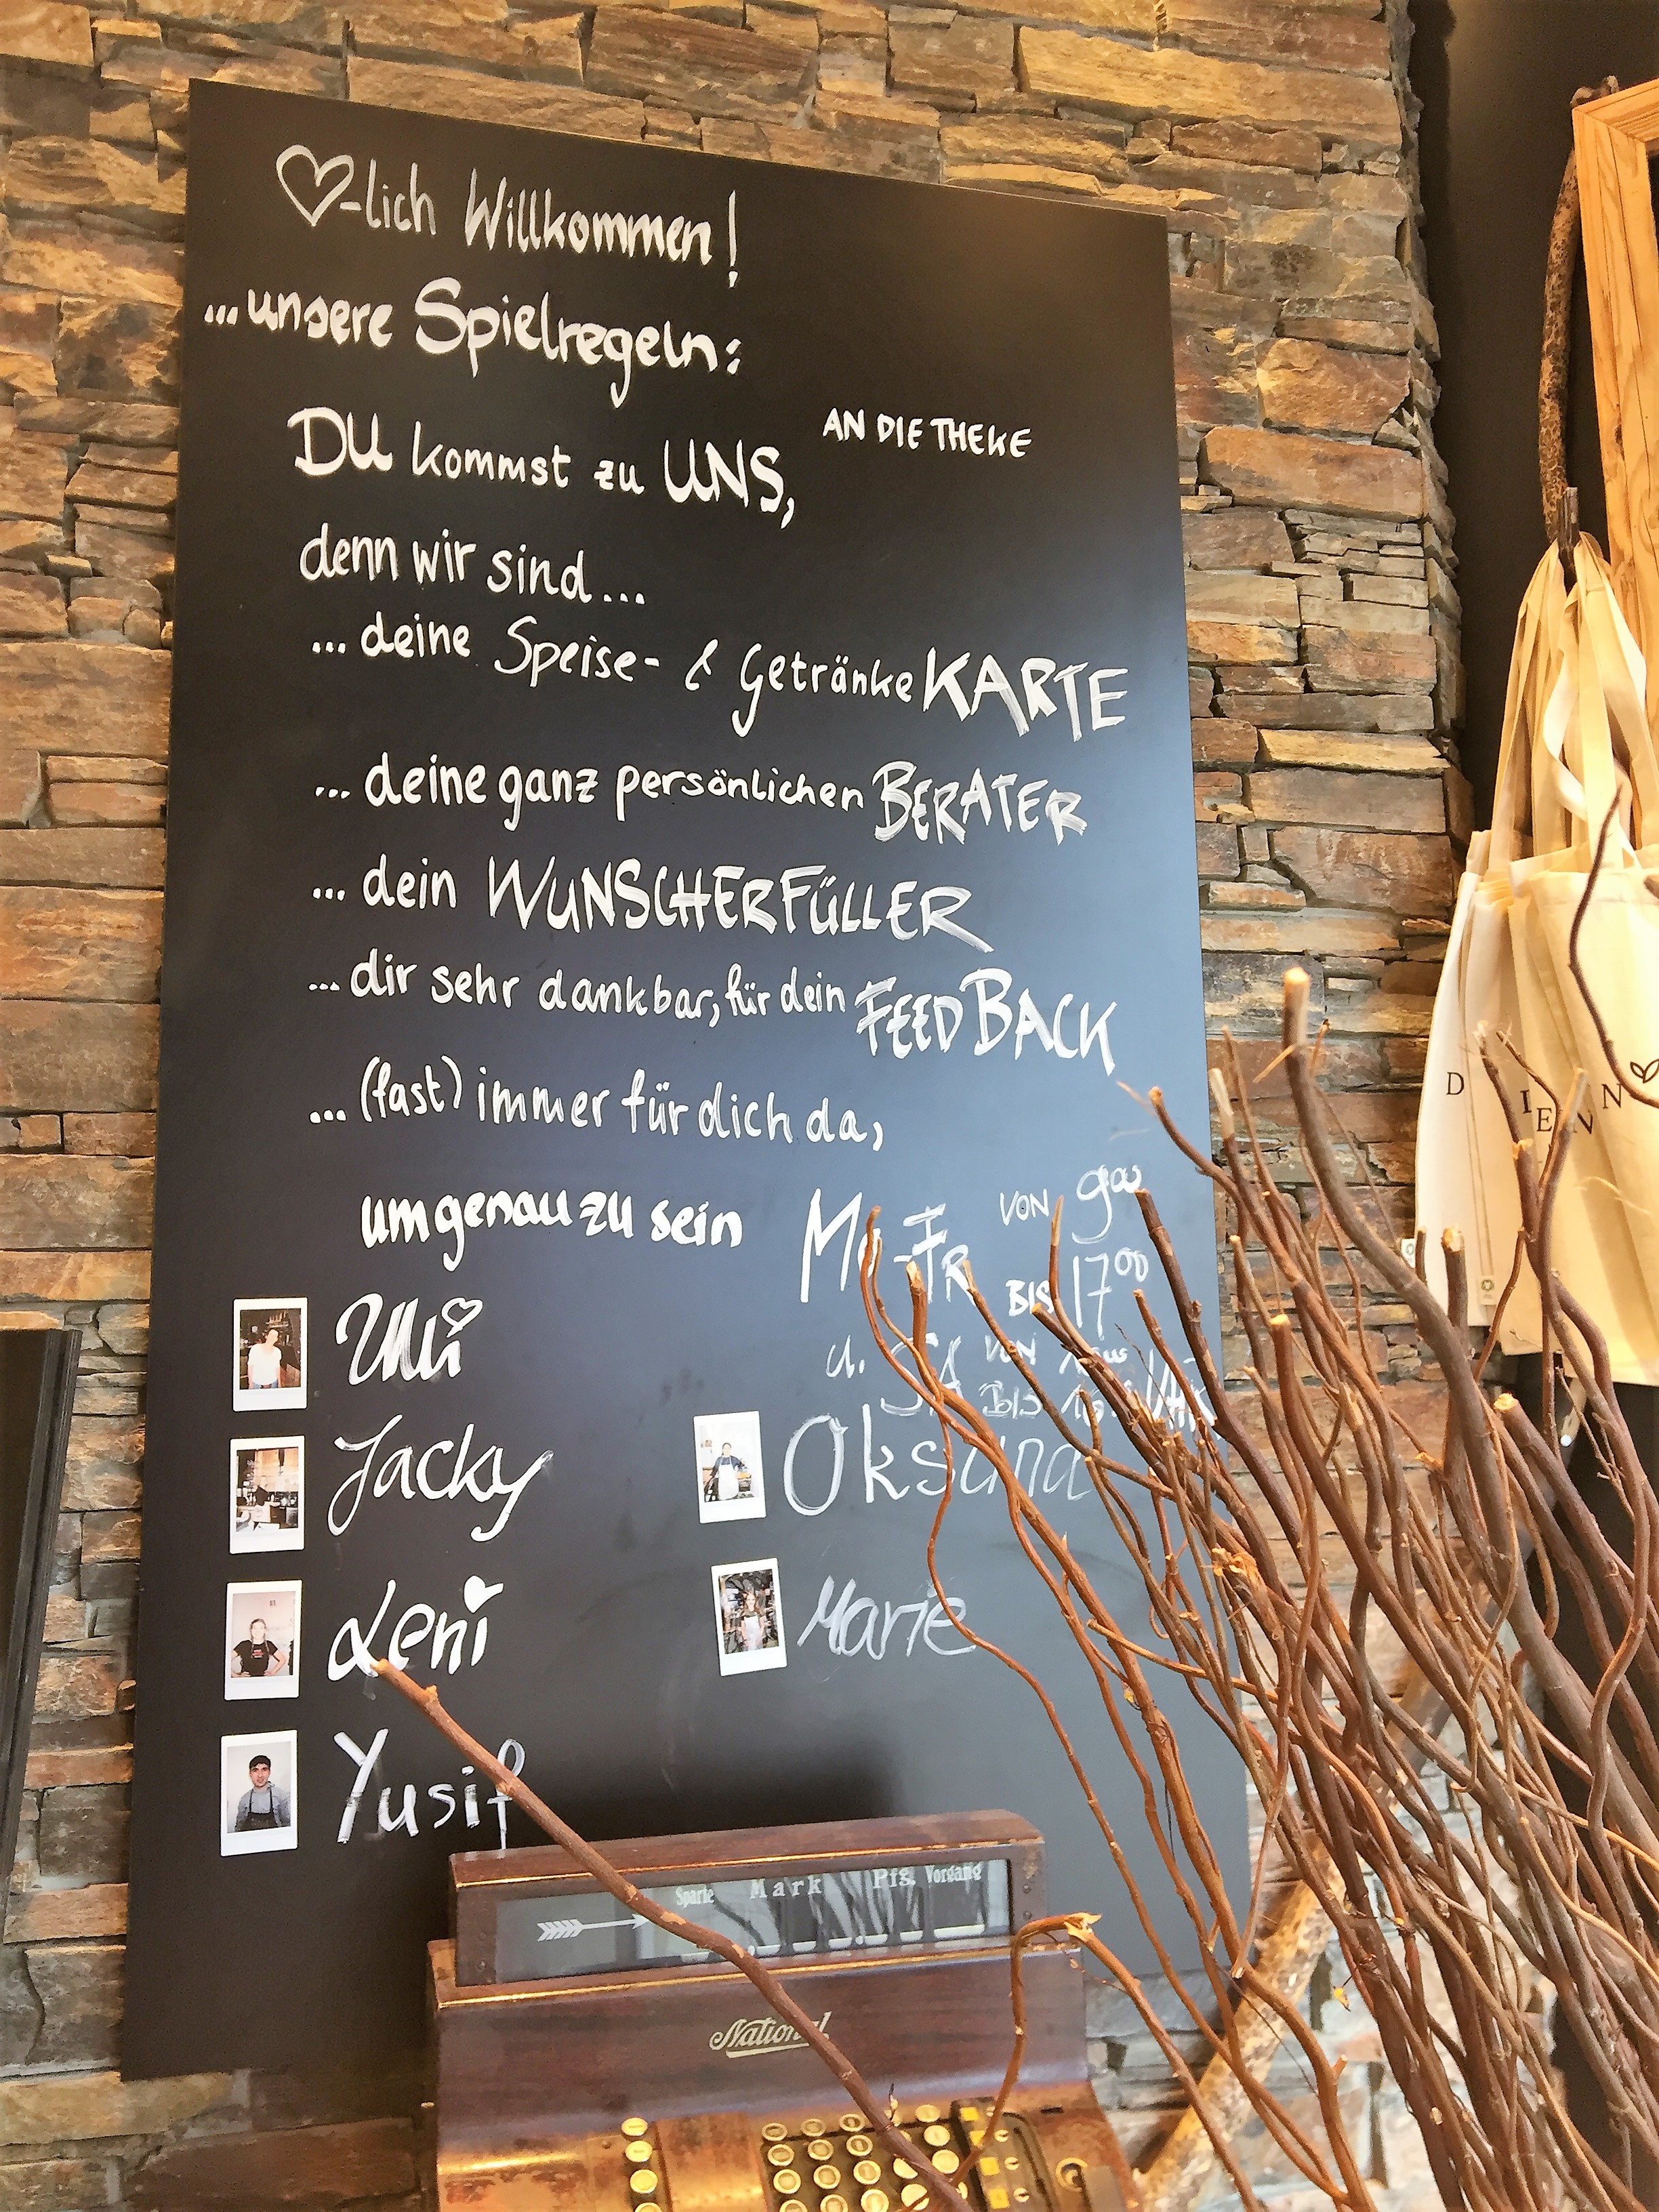 ♡-lich Willkommen!
...unsere Spielregeln:
DU kommst zu UNS, AN DIE THEKE
denn wir sind...
... deine Speise- & GetränkeKARTE
... deine ganz persönlichen BERATER
... dein WUNSCHERFÜLLER
... dir sehr dankbar, für dein FEEDBACK
... (fast) immer für dich da,
um genau zu sein
Mo-FR VON 9⁰⁰
BIS 17⁰⁰
u. SA VON
BIS UHR
Ulli
Jacky
Oksana
Leni
Marie
Yusif
Sparte Mark Pfg. Vorgang
National